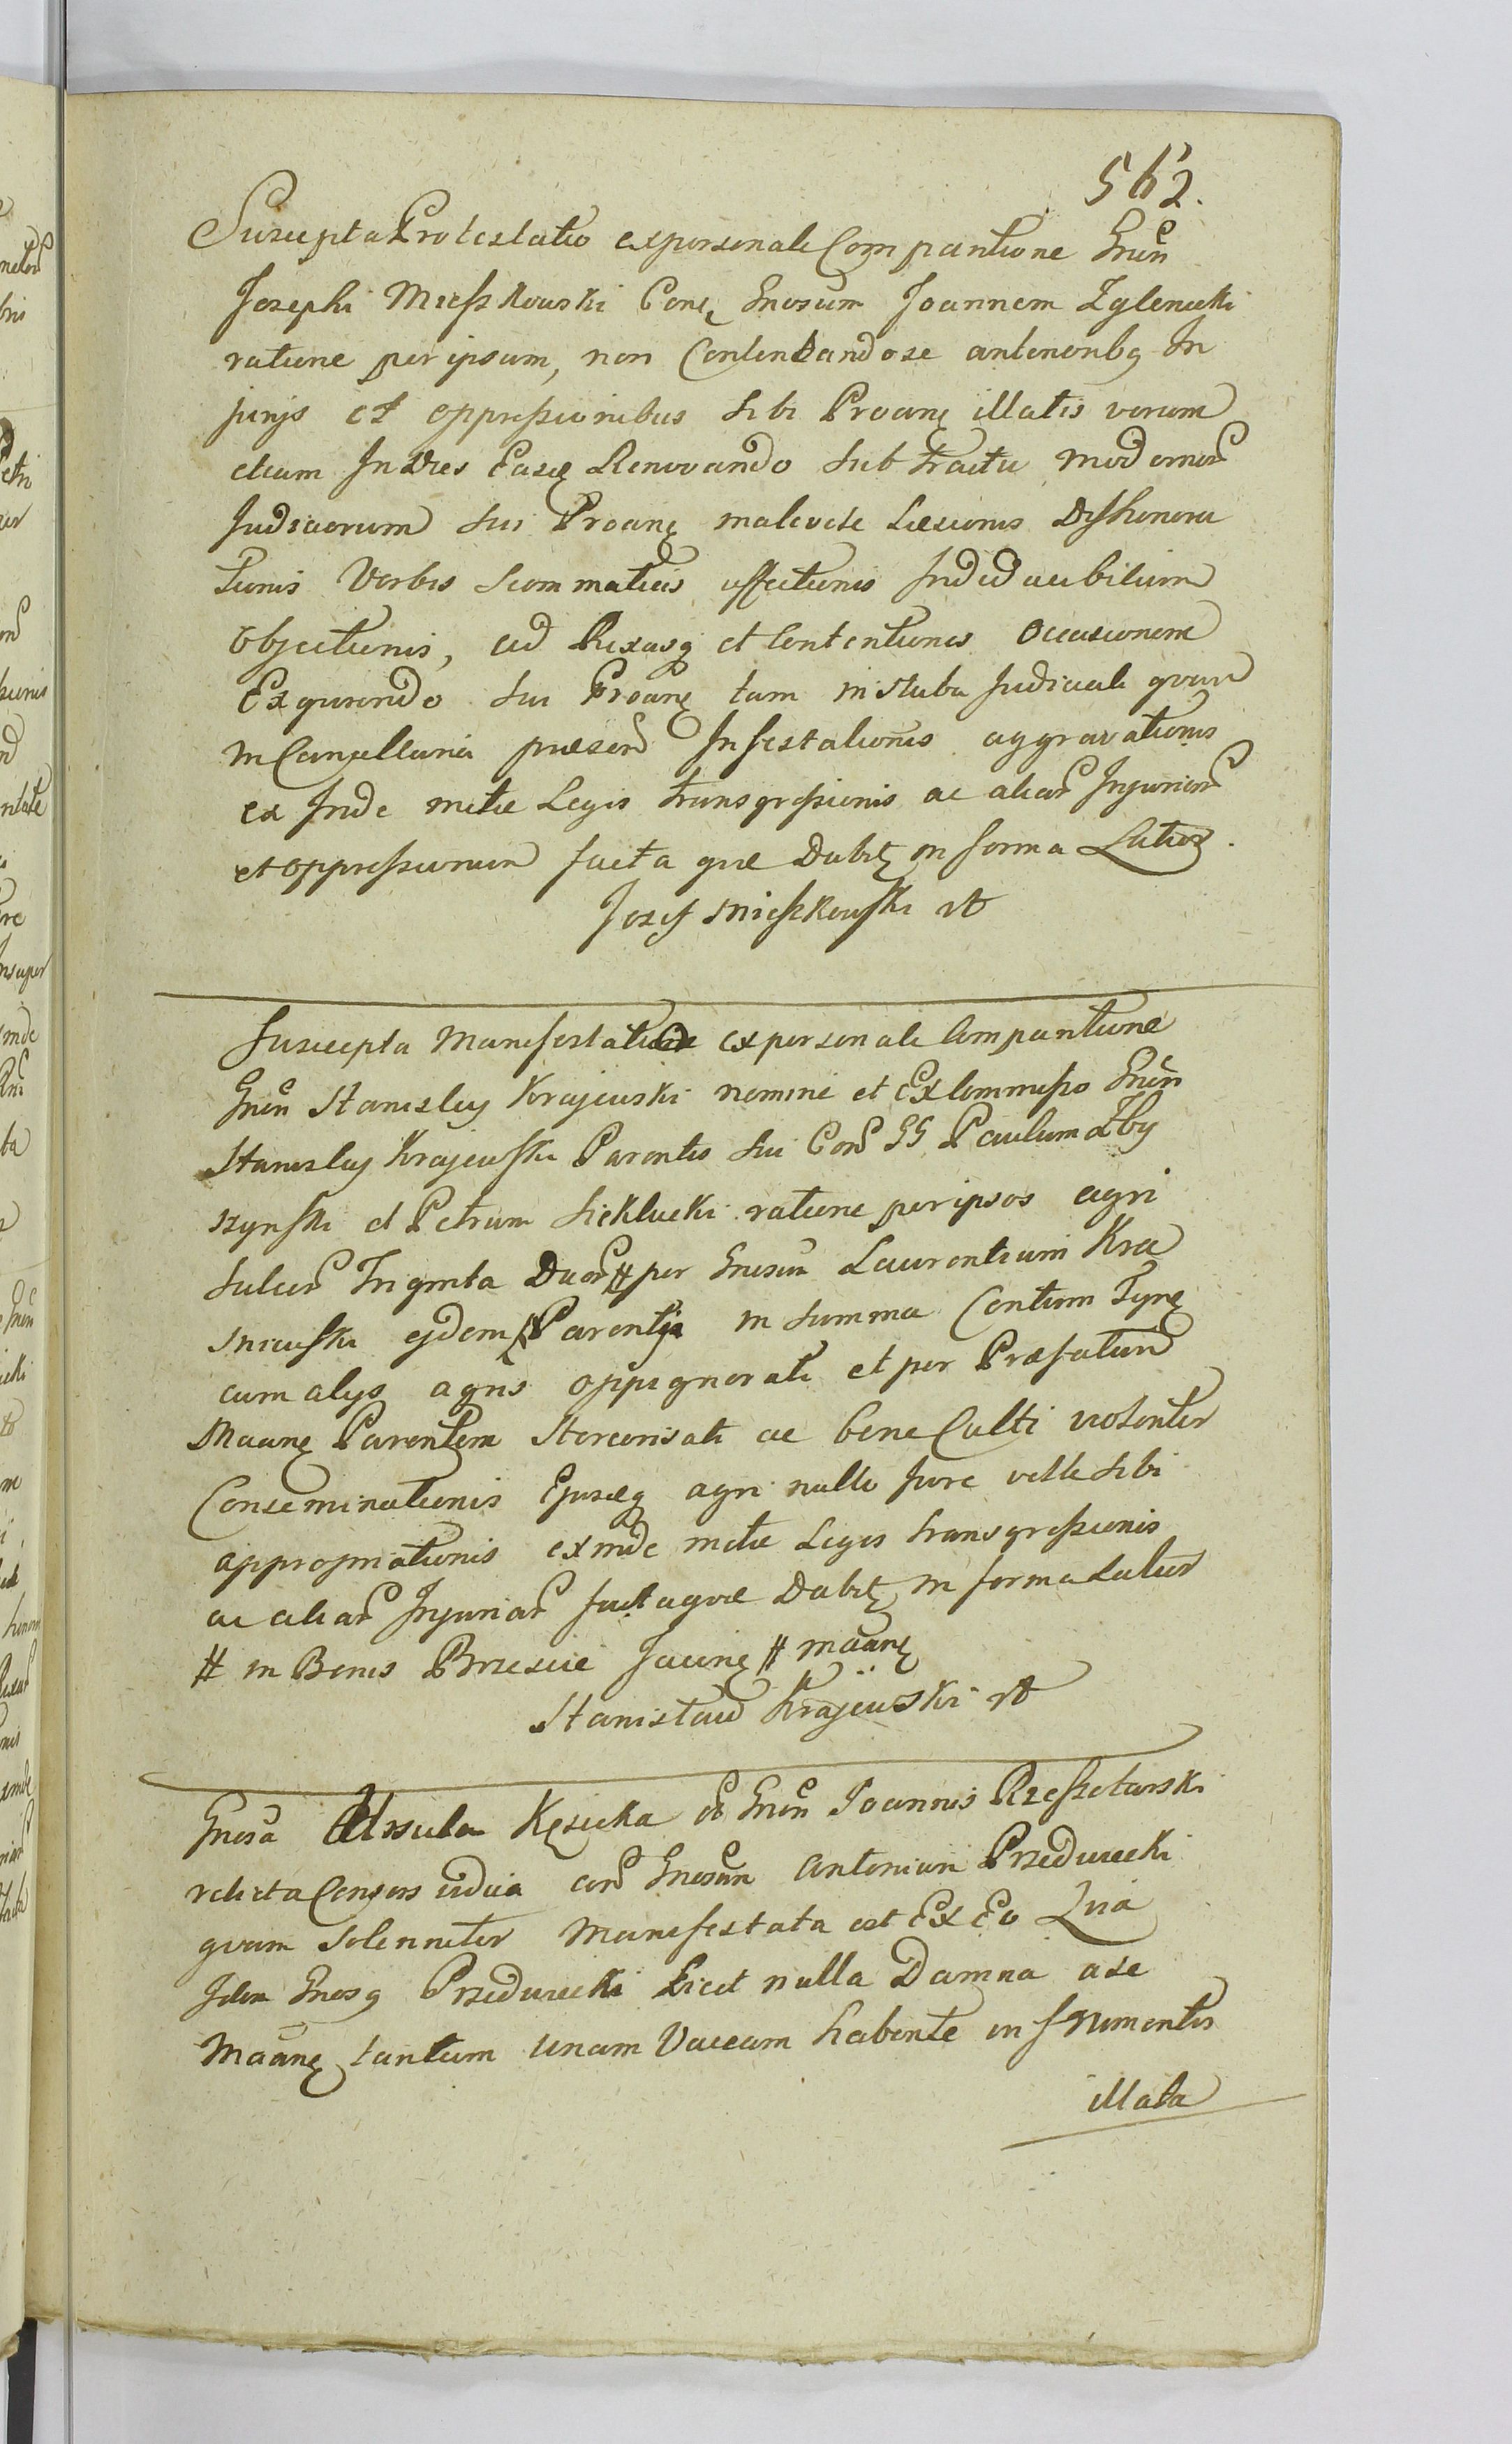 562.
Suscepta Protestatio ex personali Comparitione Gnen
Josephi Mieszkowski Conę Gnosum Joannem Zglenicki
ratione per ipsum, non Contentando se anteriorib9 In
jurijs et oppressionibus Sibi Proanę illatis verum
etiam In Dies Easq Renovando Sub Tractu modernor
Judiciorum Sui Proanę malevole Laesionis Dishonora
tionis Verbis Scommaticis affectionis
Objectionis, ad Rixasq et Contentiones Occasionem
Exquirendo Sui Proanę tam in Stuba Judiciali qvam
in Cancellaria praesen Infestationis aggravationis
ex Inde metae Legis transgressionis ac aliar Injuriar
et oppressionum facta qvae Dabit in forma Latior.
Jozef Mieszkowski mp
Suscepta Manifestatio ex personali Comparitione
Gnen Stanislaj Krajewski nomine et Ex Commisso Gnen
Stanislaj Krajewski Parentis Sui Con GG Paulum Zby
szynski et Petrum Sieklucki ratione per ipsos agri
Sulcor Triginta Duor # per Gnosum Laurentium Kra
sniewski ejdem Parenti in Summa Centum Tynę
cum alijs agris oppignorati et per Praefatum
Maanę Parentem Stercorisati ac bene Culti violenter
Conseminationis Ejusdeq agri nullo Jure velle Sibi
appropriationis exinde metae Legis transgressionis
ac aliar Injuriar facta qvae Dabit in forma Latior
# in Bonis Brzescie Jacinę # maanę
Stanisław Krajewski mp
Gnosa Ursula Kęsicka o Gnen Joannis Rzeszotarski
relicta Consors vidua con Gnosum Antonium Przedwiecki
qvam Solenniter Manifestata est Ex Eo Quia
Idem Gnos9 Przedwiecki Licet nulla Damna a se
Maanę tantum unam Vaccam habente in frumentis
illata